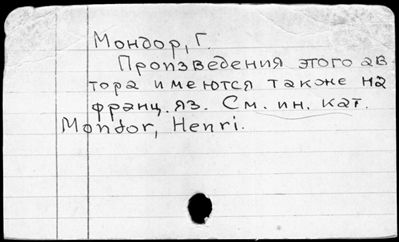 Мондор, Г.
Произведения этого ав-
тора имеются также на
франц. яз. См. ин. кат.
Mondor, Henri.